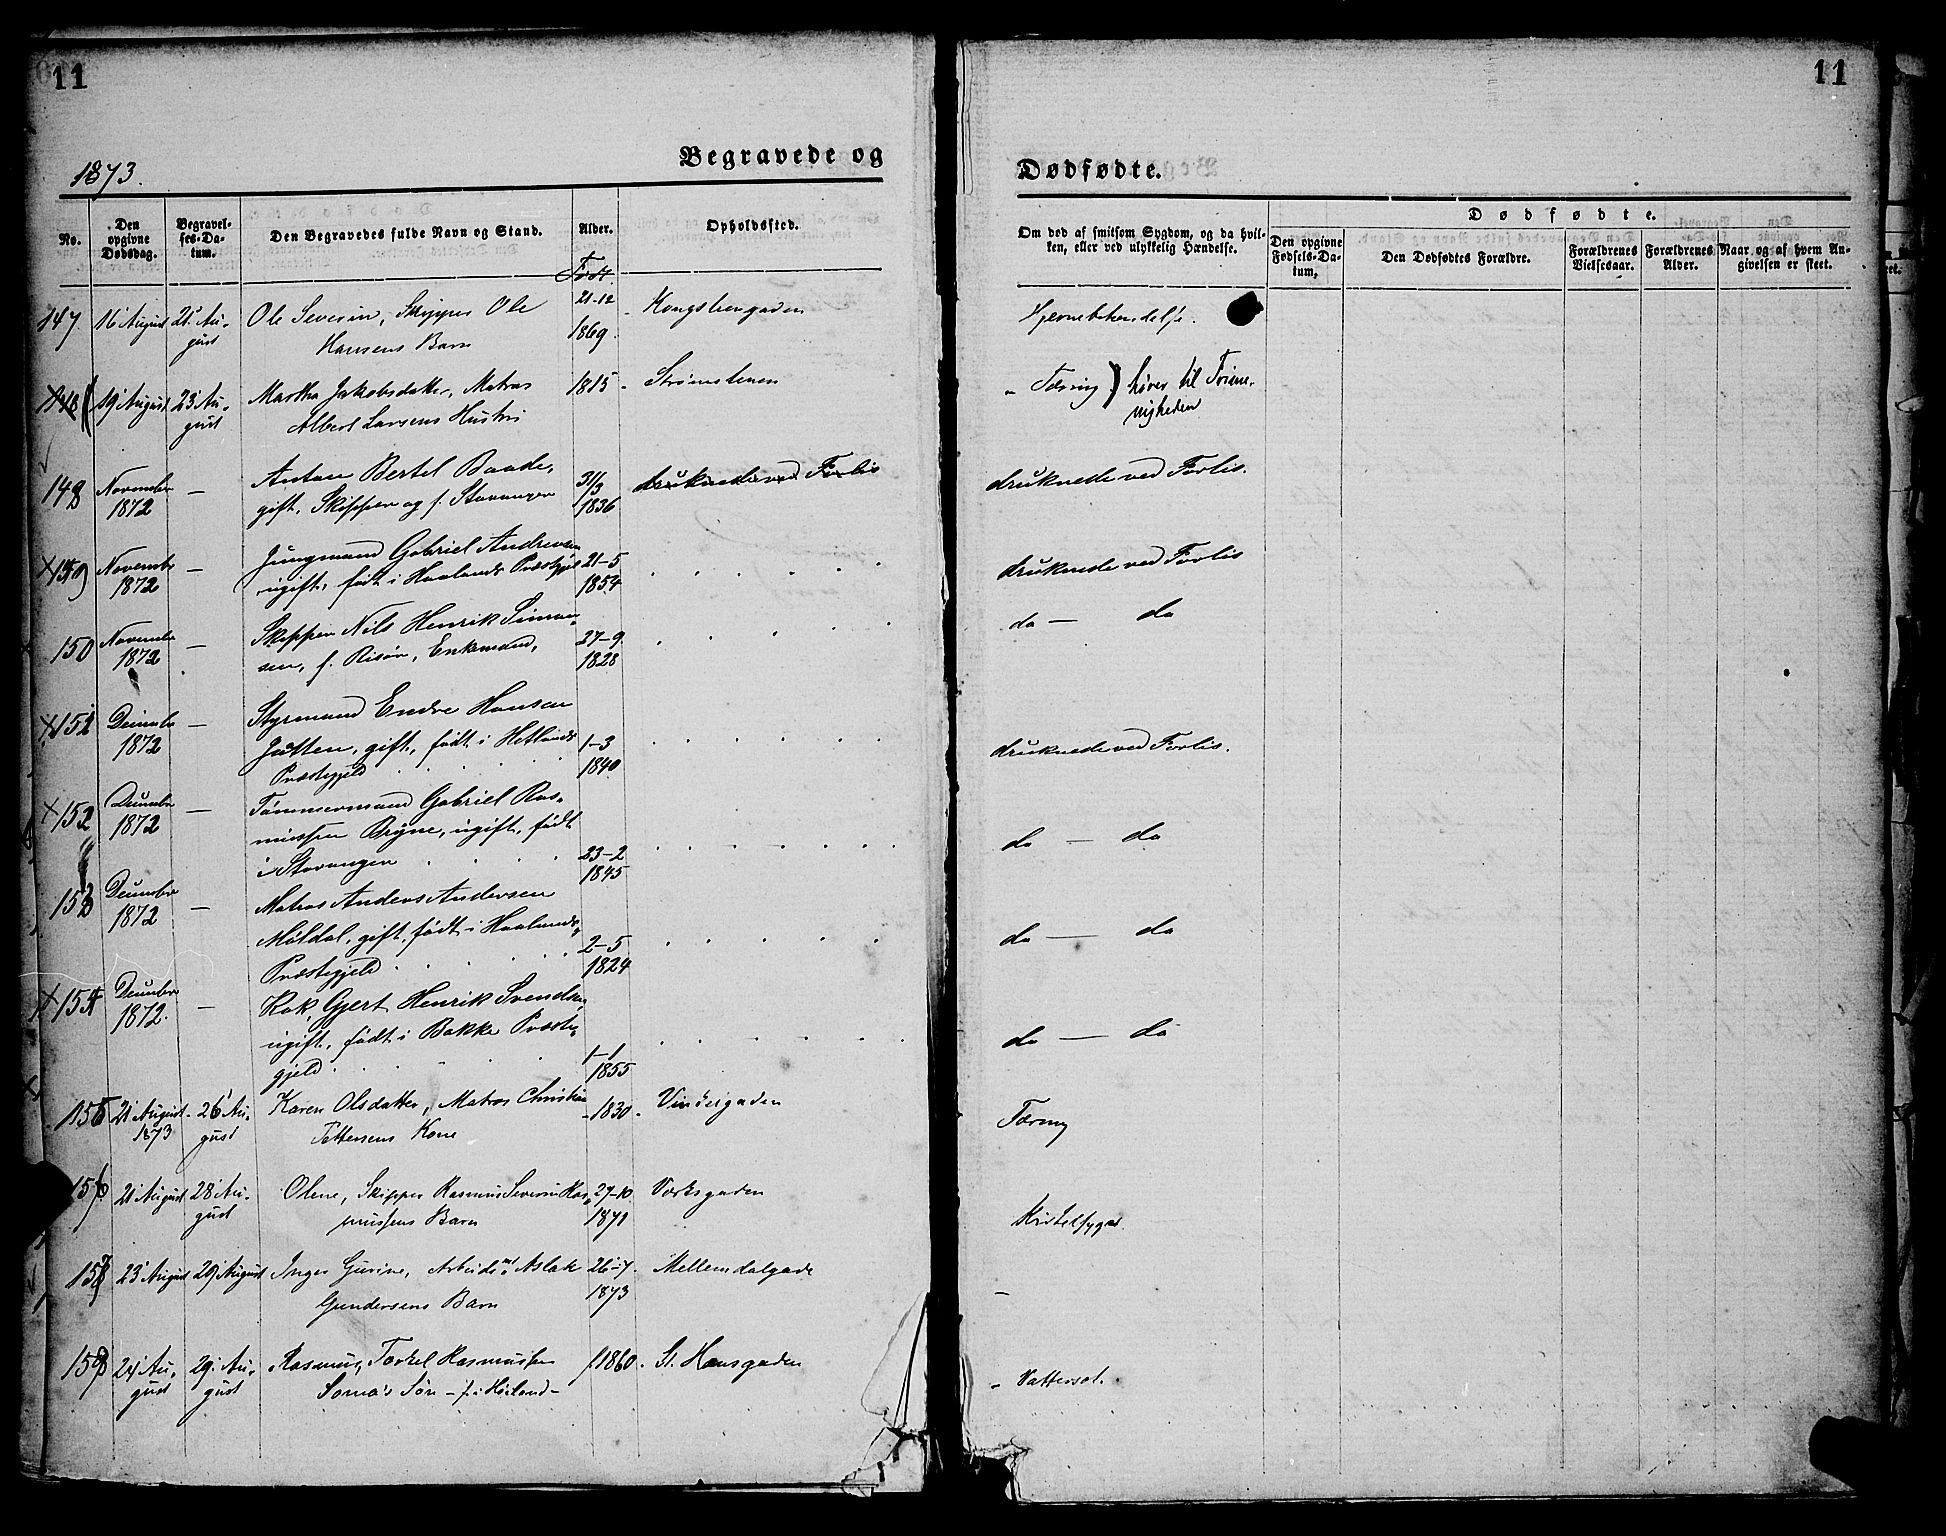 11
11
1873.
Begravede og
Dødfødte.
No.
Den opgivne Dødsdag.
Begravelses-Datum.
Den Begravedes fulde Navn og Stand.
Alder.
Født.
Opholdssted.
Om død af smitsom Sygdom, og da hvilken, eller ved ulykkelig Hændelse.
Dødfødte.
Den opgivne Fødsels-Datum.
Den Dødfødtes Forældre.
Forældrenes Vielsesaar.
Forældrenes Alder.
Naar og af hvem Angivelsen er skeet.
147 16 August 21 Au- Ole Severin, Skipper Ole 21-12 Kongsteengaden
gust Hansens Barn 1869.
148 19 August 23 Au- Martha Jakobsdatter, Matros 1815 - Strømstenen - Tæring) hører til Triene-
gust Albert Larsens Hustru nigheden
148 November — Anton Bertel Baade, 31/3 druknede ved Forlis druknede ved Forlis.
1872 gift, Skipper og f. Stavanger 1836
November — Jungmand Gabriel Andresen 21-5 druknede ved Forlis
1872 ugift, født i Haalands Præstgjd 1854
150 November — Skipper Nils Henrik Simon- 27-9 do — do
1872 sen, f. Risør, Enkemand, 1828
151 — Styrmand Endre Hansen
1872 Jøtten, gift, født i Hetlands 1-3 druknede ved Forlis.
Præstegjeld 1840
152 — Tømmermand Gabriel Ras-
1872 mussen Bryne, ugift, født do — do
i Stavanger 23-2
1845
153 — Matros Anders Andersen
1872 Møldal, gift, født i Haalands 2-5 do — do
Præstegjeld 1824
154 — Kok, Gjert Henrik Svendsen,
1872. ugift, født i Bakke Præste- 1-1 do — do
gjeld 1855
155 21 August 26 Au- Karen Olsdatter, Matros Christian -1830- Vindergaden Tæring
1873 gust Pettersens Kone
156 21 August 28 Au- Olene, Skipper Rasmus Severin Ras- 27-10 Værksgaden
gust mussens Barn 1871 Kirtelsyge.
157 23 August 29 August Inger Gurine, Arbeidsm. Aslak 26-7. Mellemdalgade
Gundersens Barn 1873 -
158 24 Au- 29 Au- Rasmus, Torkel Rasmussen 1860. St. Hansgaden - Vattersot.
gust gust Søn - f. i Høiland -